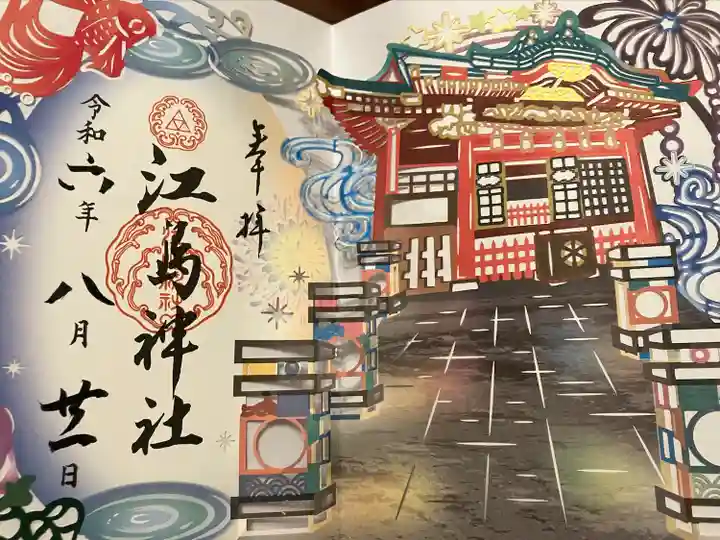 奉拝
江島神社
令和六年
八月廿一日